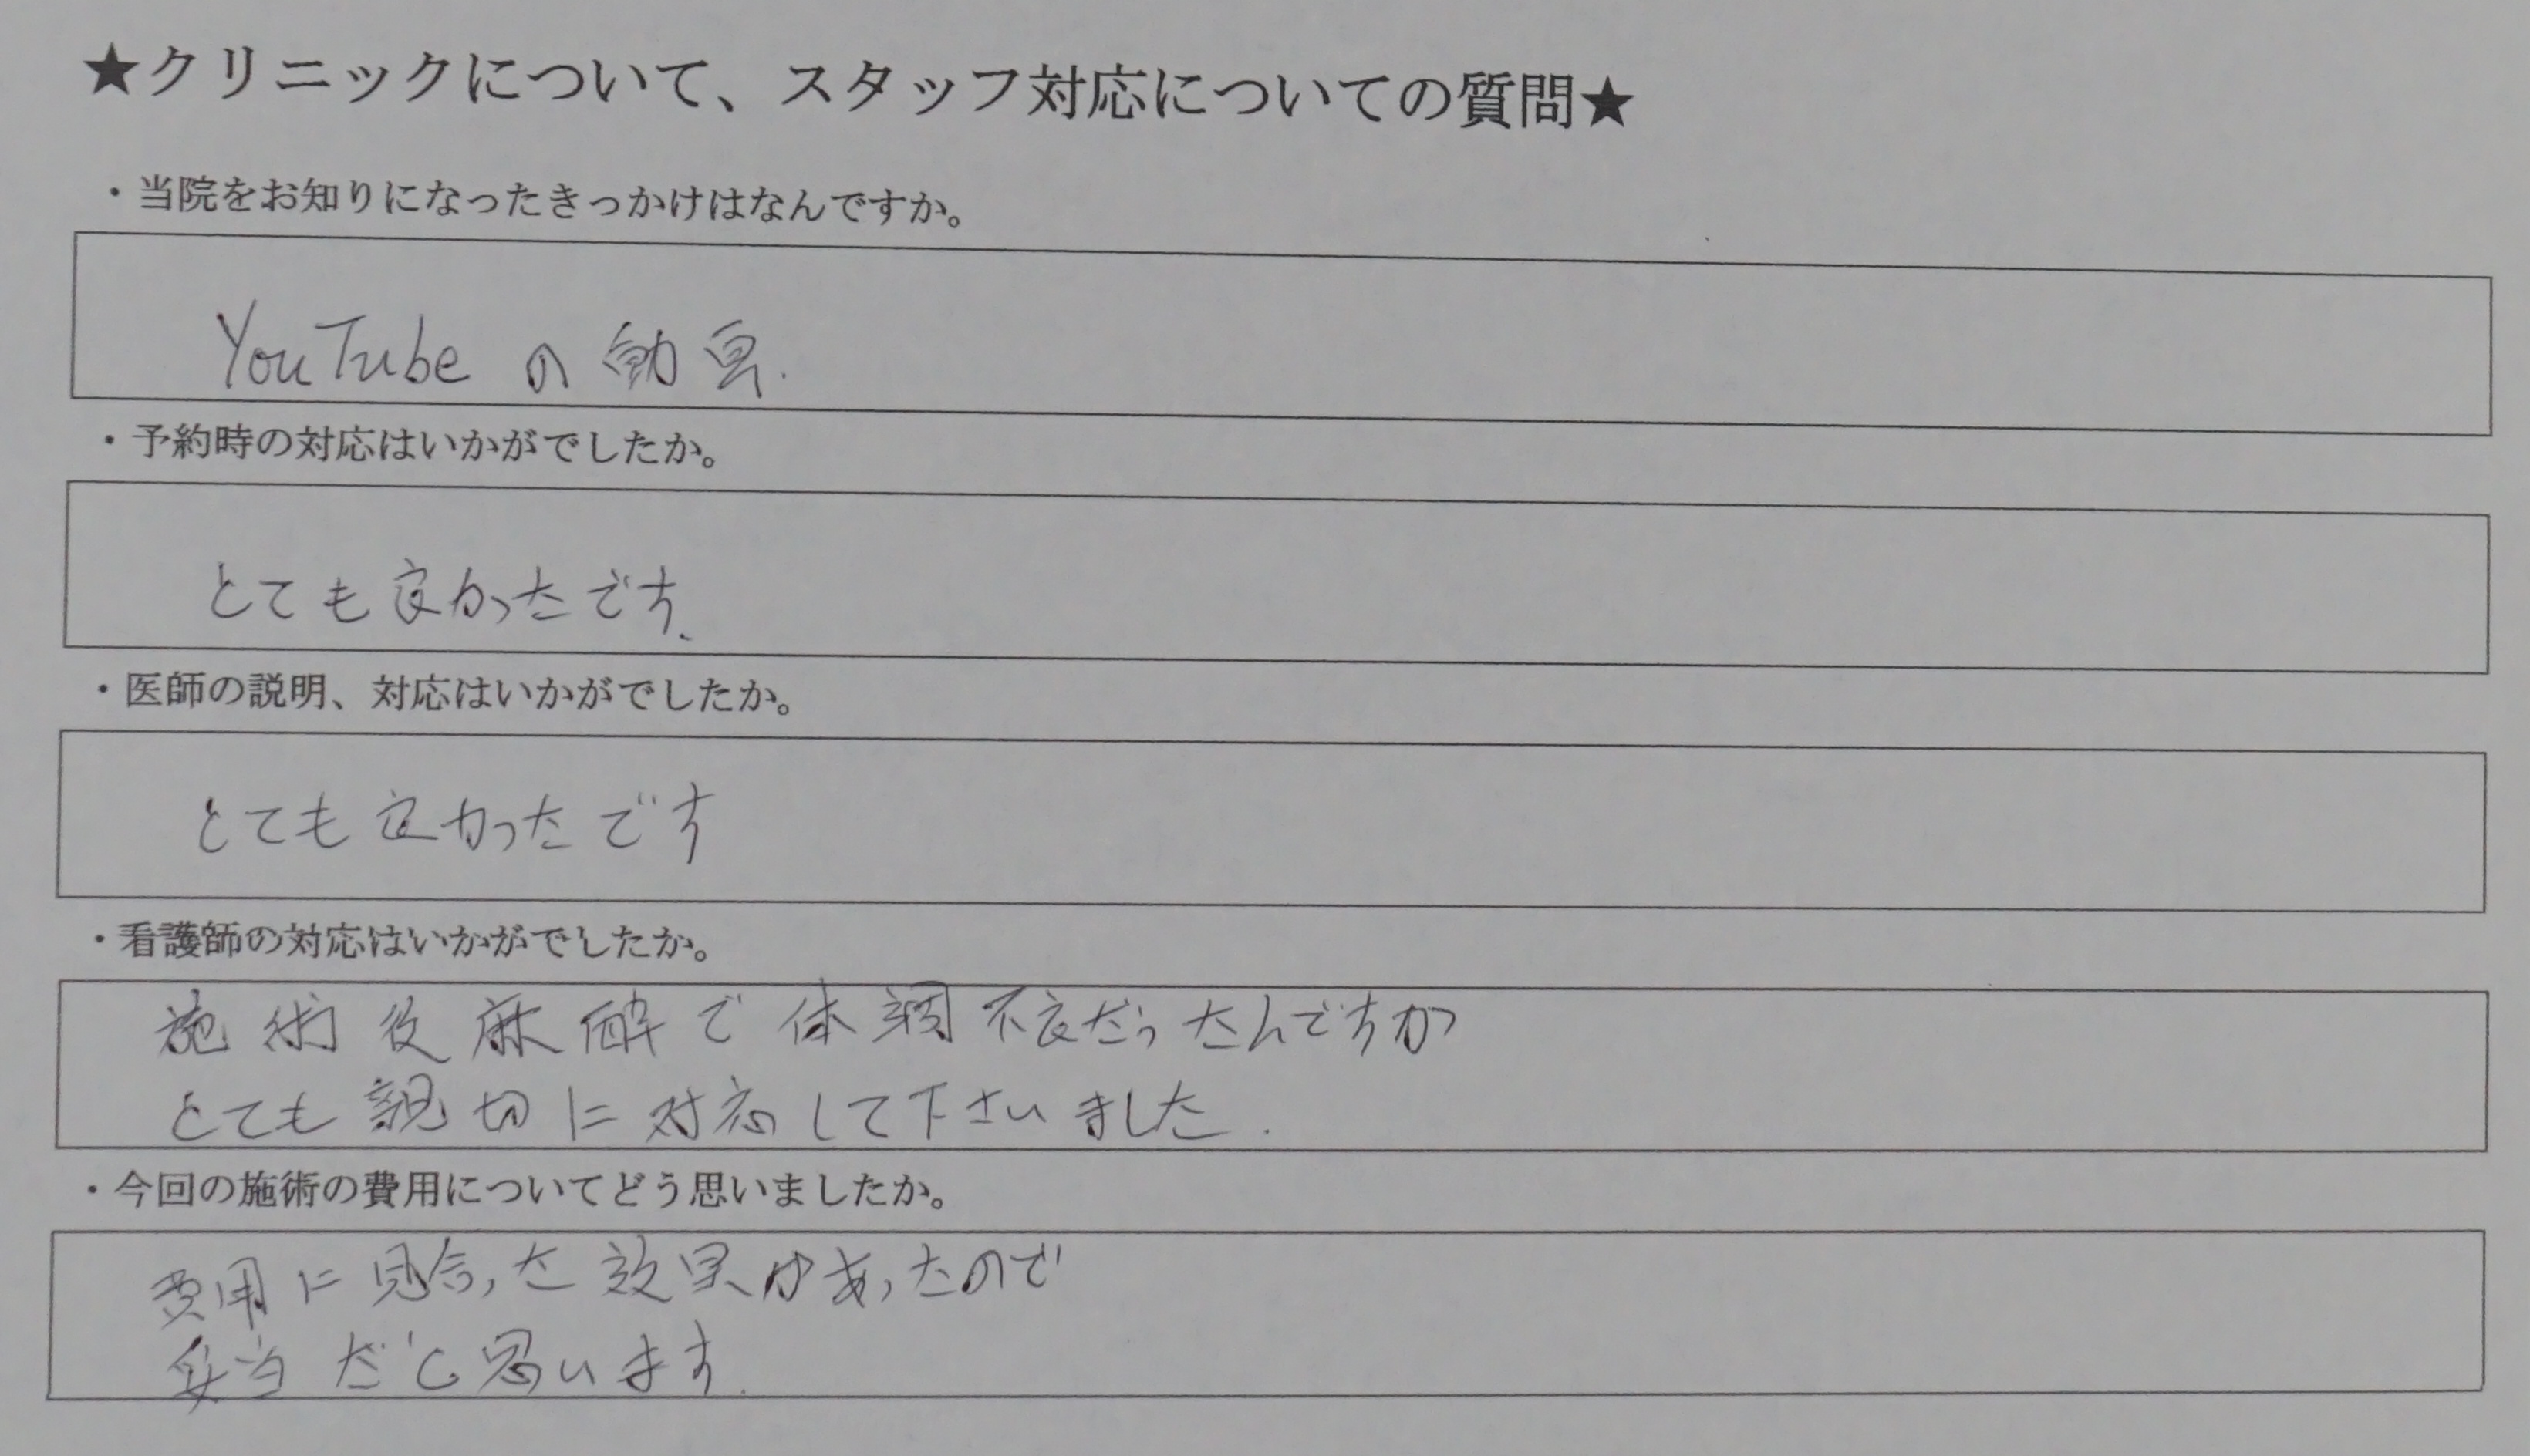 ★クリニックについて、スタッフ対応についての質問★
・当院をお知りになったきっかけはなんですか。
YouTubeの動画.
・予約時の対応はいかがでしたか。
とても良かったです、
・医師の説明、対応はいかがでしたか。
とても良かったです
・看護師の対応はいかがでしたか。
施術後麻酔で体調不良だったんですが
とても親切に対応して下さいました.
・今回の施術の費用についてどう思いましたか。
費用に見合った効果があったので
妥当だと思います.